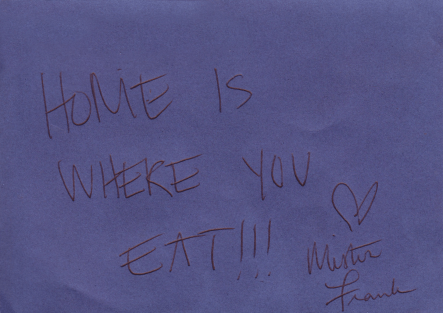 HOME IS
WHERE YOU
EAT!!!
Mister
Frank